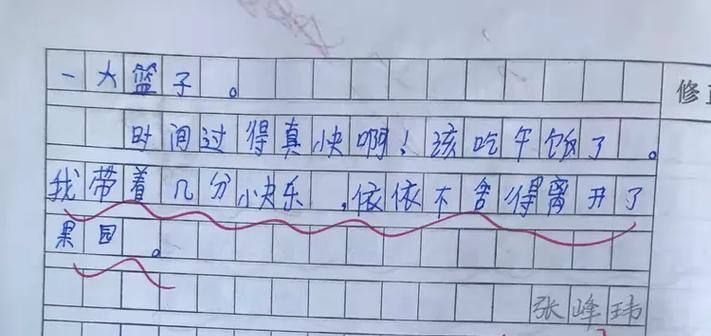 一大篮子。
时间过得真快啊！该吃午饭了。
我带着几分快乐，依依不舍得离开了
果园。
张峰玮
修正